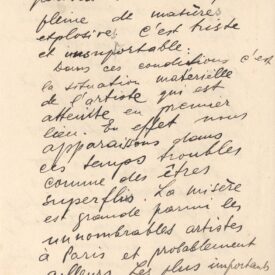 pleine de matières
explosives c'est triste
et insuportable.
Dans ces conditions c'est
la situation matérielle
de l'artiste qui est
atteinte en premier
lieu. En effet nous
apparaissons dans
ces temps troubles
comme des êtres
superflis. La misère
est grande parmi les
innombrables artistes
à Paris et probablement
ailleurs. Les plus importants